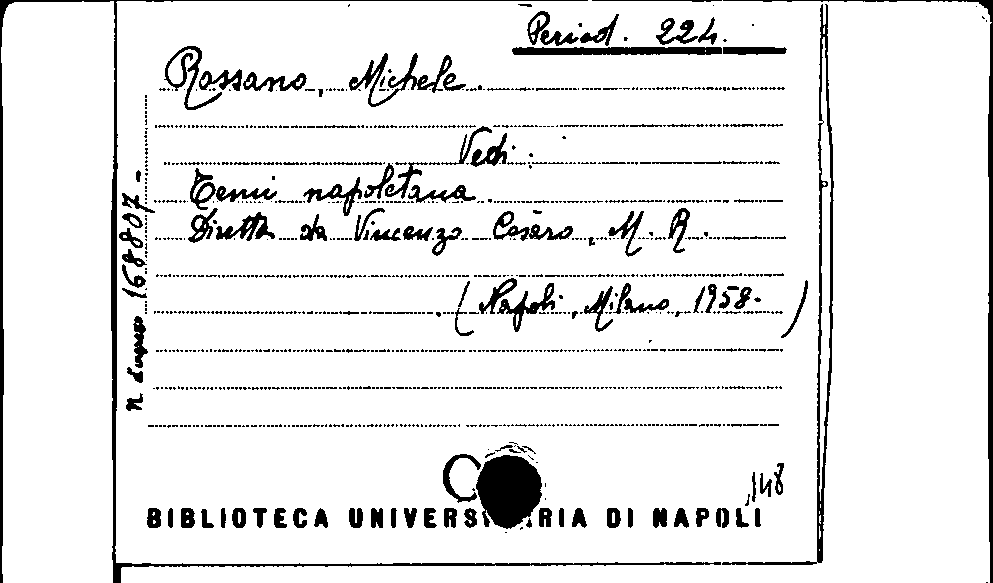 Period. 224.
Rossano, Michele.
Vedi:
Temi napoletana.
Diretta da Vincenzo Cesàro, M. R.
(Napoli, Milano, 1958- )
n. d'ingresso 168807-
C
148
BIBLIOTECA UNIVERSITARIA DI NAPOLI